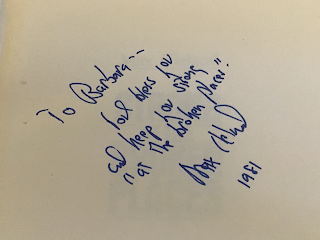 To Barbara--
God bless you
and keep you strong
"at the broken places."
1981